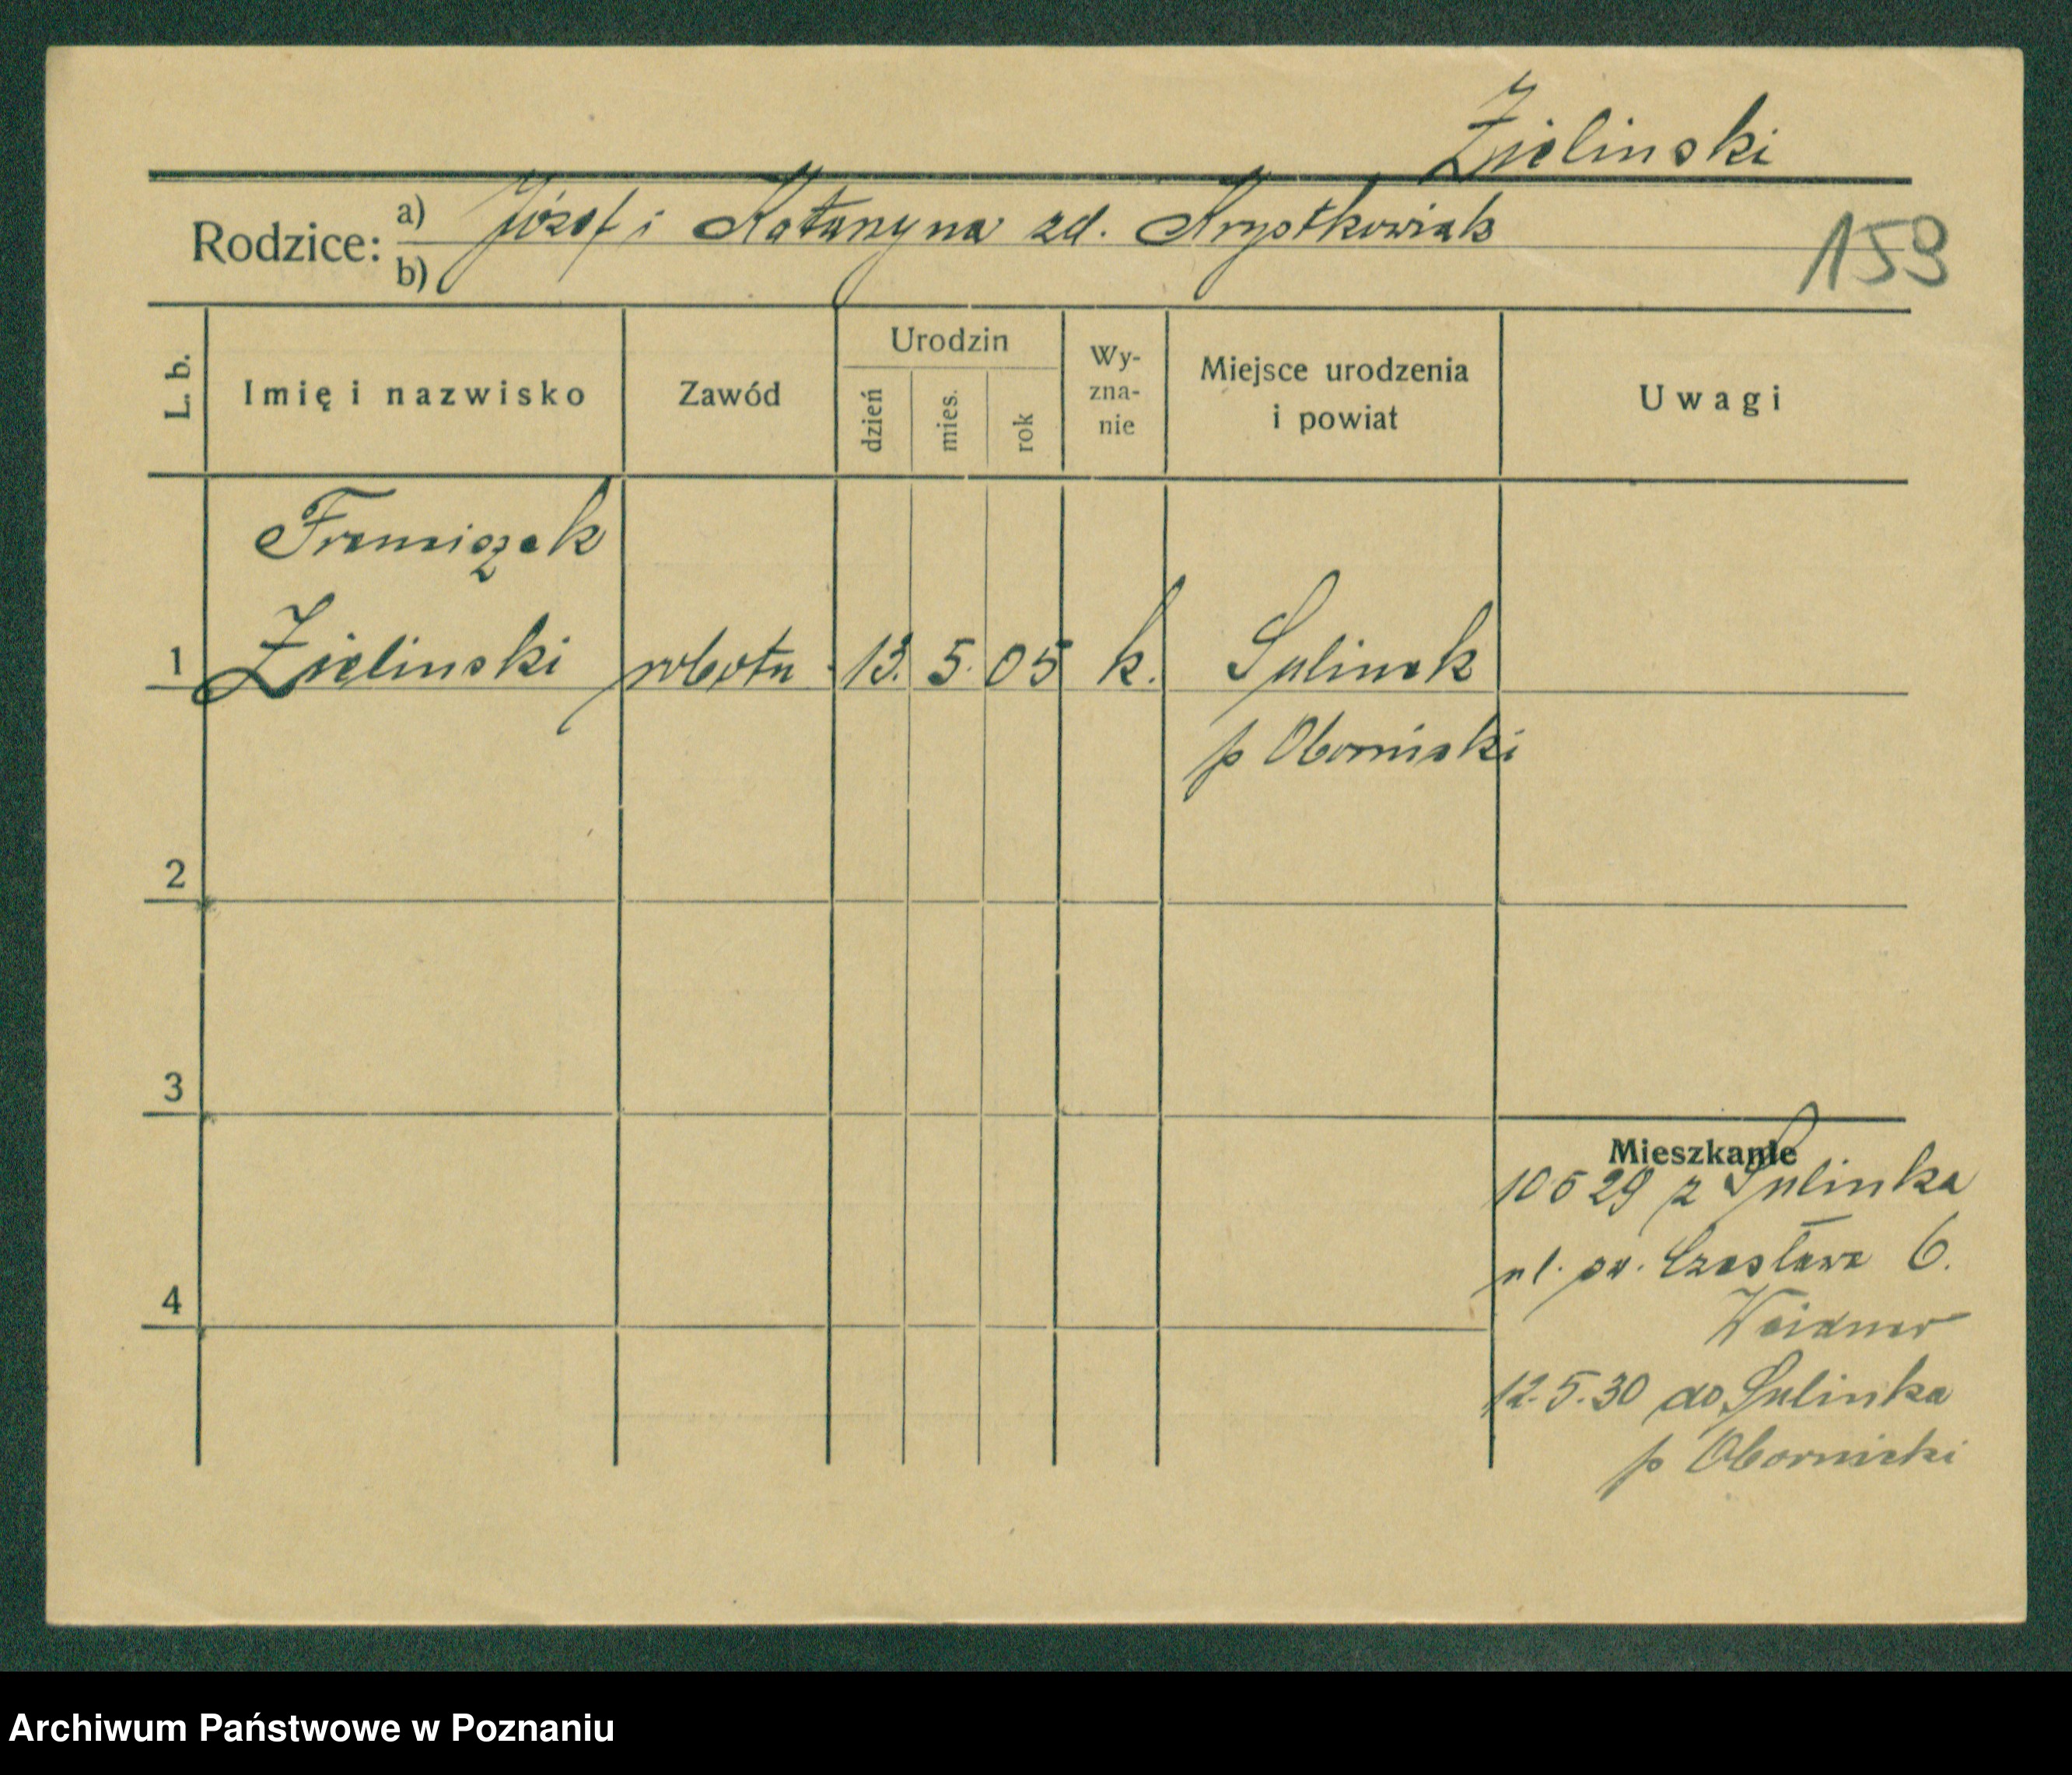 Zielinski
Rodzice: a) Józef i Katarzyna zd. Krystkowiak
b)
159
L. b.
Imię i nazwisko
Zawód
Urodzin
dzień
mies.
rok
Wy-
zna-
nie
Miejsce urodzenia
i powiat
Uwagi
Franciszek
1 Zielinski robotn. 13. 5. 05 k. Sulinek
p Obornicki
2
3
Mieszkanie
10 5 29 z Sulinka
ul. św. Czesława 6.
Weidner
4
12.5.30 do Sulinka
p Obornicki
Archiwum Państwowe w Poznaniu